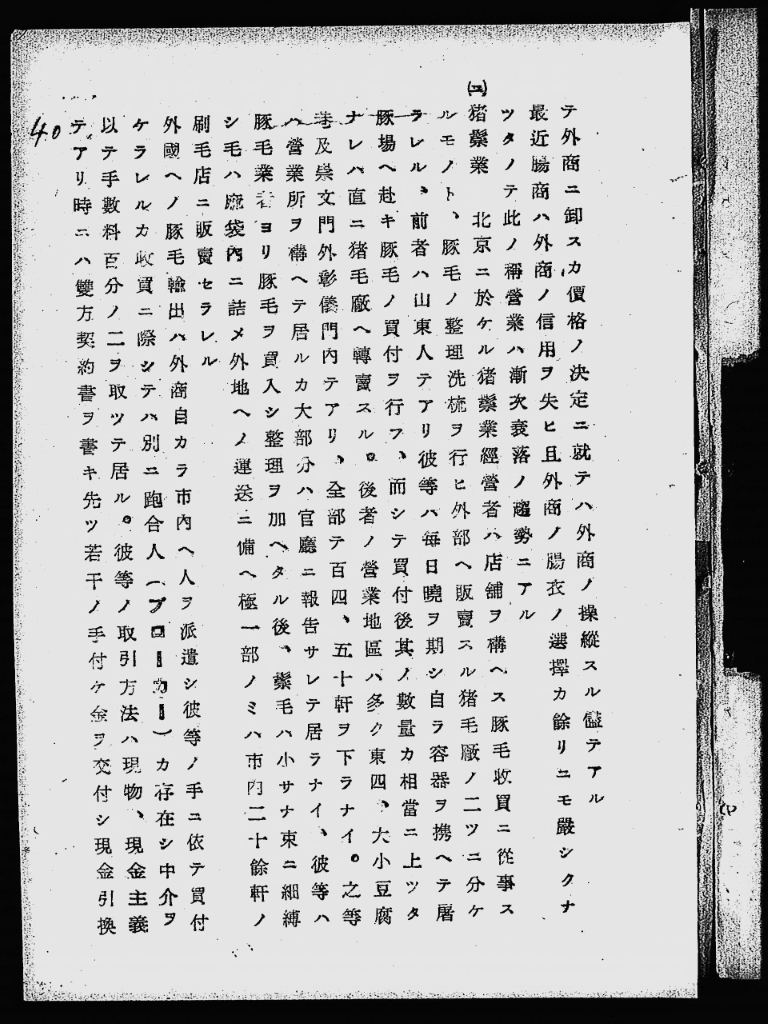 テ外商ニ卸スカ價格ノ決定ニ就テハ外商ノ操縱スル儘テアル
最近腸商ハ外商ノ信用ヲ失ヒ且外商ノ腸衣ノ選擇カ餘リニモ嚴シクナ
ツタノテ此ノ種營業ハ漸次衰落ノ趨勢ニアル
(ニ)猪鬃業 北京ニ於ケル猪鬃業經營者ハ店舖ヲ構ヘス豚毛收買ニ從事ス
ルモノト、豚毛ノ整理洗梳ヲ行ヒ外部ヘ販賣スル猪毛廠ノ二ツニ分ケ
ラレル、前者ハ山東人テアリ彼等ハ每日曉ヲ期シ自ラ容器ヲ携ヘテ屠
豚場ヘ赴キ豚毛ノ買付ヲ行フ、而シテ買付後其ノ數量カ相當ニ上ツタ
ナレハ直ニ猪毛廠ヘ轉賣スル。後者ノ營業地區ハ多ク東四、大小豆腐
巷及崇文門外彰儀門內テアリ、全部テ百四、五十軒ヲ下ラナイ。之等
ハ營業所ヲ構ヘテ居ルカ大部分ハ官廳ニ報告サレテ居ラナイ、彼等ハ
豚毛業者ヨリ豚毛ヲ買入シ整理ヲ加ヘタル後、鬃毛ハ小サナ束ニ細縛
シ毛ハ麻袋內ニ詰メ外地ヘノ運送ニ備ヘ極一部ノミハ市內二十餘軒ノ
刷毛店ニ販賣セラレル
外國ヘノ豚毛輸出ハ外商自カラ市內ヘ人ヲ派遣シ彼等ノ手ニ依テ買付
ケラレルカ收買ニ際シテハ別ニ跑合人(ブローカー)カ存在シ中介ヲ
以テ手數料百分ノ二ヲ取ツテ居ル。彼等ノ取引方法ハ現物、現金主義
テアリ時ニハ雙方契約書ヲ書キ先ツ若干ノ手付ケ金ヲ交付シ現金引換
40